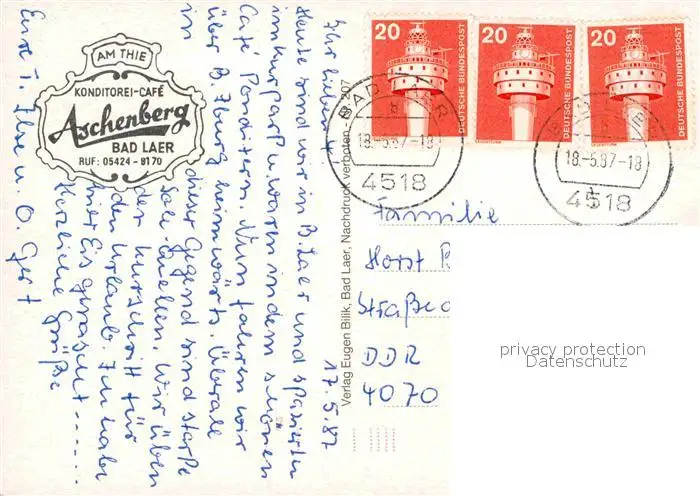 AM THIE
KONDITOREI-CAFÉ
Aschenberg
BAD LAER
RUF: 05424 - 8170
17.5.87
Ihr Lieben!
Heute sind wir in B. Laer und spazierten
im Kurpark u. waren in dem schönen
Café Konditern. Nun fahren wir
über B. Iburg heimwärts. Überall
in dieser Gegend sind starke
Sole-Quellen. Wir üben
der Kurschritt für
den Urlaub. Ich habe
hier Eis genascht......
Herzliche Grüße
Eure T. Ilse u. O. Gert
Verlag Eugen Bilik, Bad Laer, Nachdruck verboten
20
DEUTSCHE BUNDESPOST
20
DEUTSCHE BUNDESPOST
20
DEUTSCHE BUNDESPOST
BAD LAER
b
18.-5.87-18
4518
BAD LAER
18.-5.87-18
b
4518
Familie
Horst
Straße
DDR
4070
privacy protection
Datenschutz